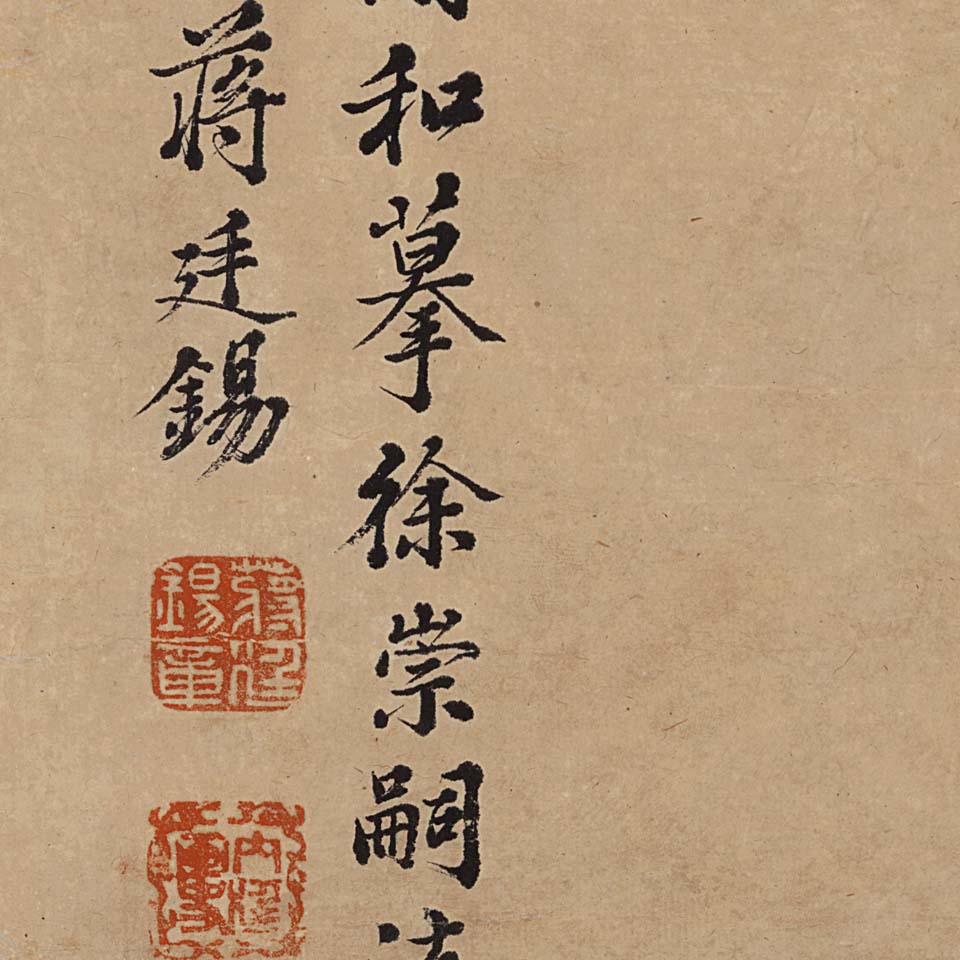 和摹徐崇嗣法
蔣廷錫
蔣廷錫章